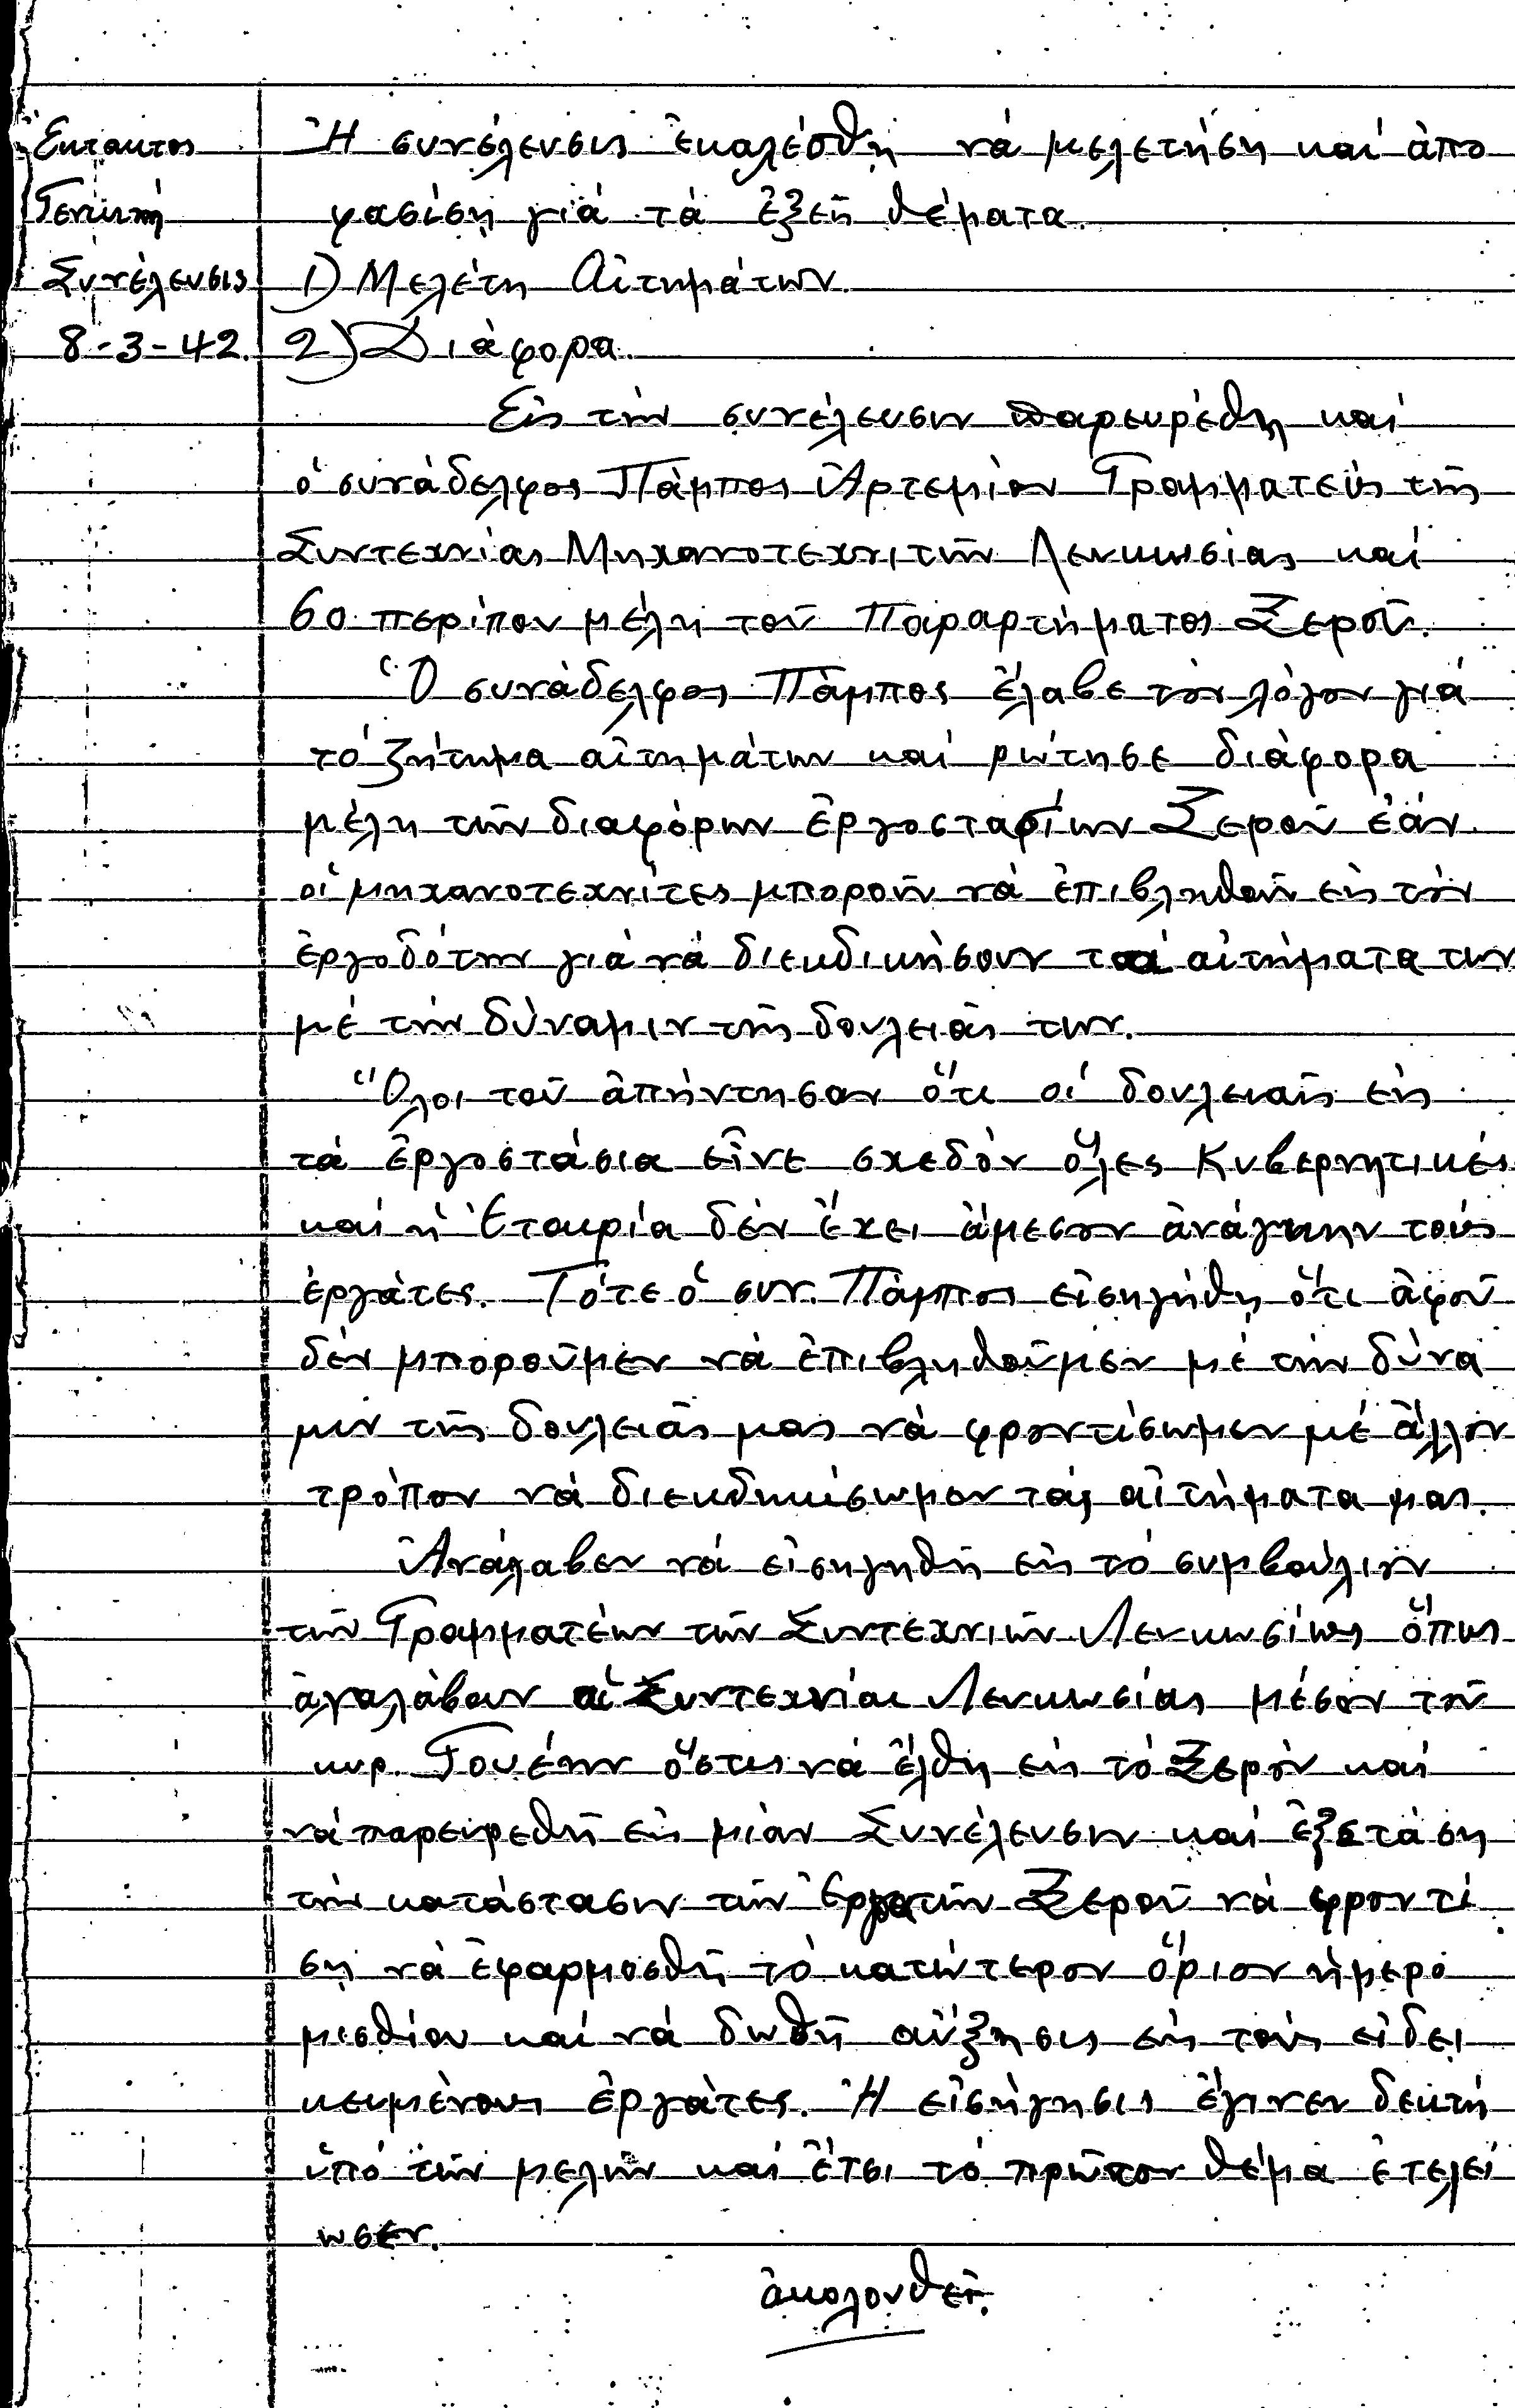 Ἔκτακτος
Γενική
Συνέλευσις
8-3-42.
Ἡ συνέλευσις ἐκαλέσθη νά μελετήση καί ἀπο
φασίση γιά τά ἑξῆ θέματα.
1) Μελέτη Αἰτημάτων.
2) Διάφορα.
Εἰς τήν συνέλευσιν παρευρέθη καί
ὁ συνάδελφος Πάμπος Ἀρτεμίου Γραμματεύς τῆς
Συντεχνίας Μηχανοτεχνιτῶν Λευκωσίας καί
60 περίπου μέλη τοῦ Παραρτήματος Ξεροῦ.
Ὁ συνάδελφος Πάμπος ἔλαβε τόν λόγον γιά
τό ζήτημα αἰτημάτων καί ρώτησε διάφορα
μέλη τῶν διαφόρων ἐργοστασίων Ξεροῦ ἐάν
οἱ μηχανοτεχνίτες μποροῦν νά ἐπιβληθοῦν εἰς τόν
ἐργοδότην γιά νά διεκδικήσουν τά αἰτήματα των
μέ τήν δύναμιν τῆς δουλειᾶς των.
Ὅλοι τοῦ ἀπήντησαν ὅτι οἱ δουλειαῖς εἰς
τά ἐργοστάσια εἶνε σχεδόν ὅλες Κυβερνητικές
καί ἡ Ἑταιρία δέν ἔχει ἄμεσον ἀνάγκην τούς
ἐργάτες. Τότε ὁ συν. Πάμπος εἰσηγήθη ὅτι ἀφοῦ
δέν μποροῦμεν νά ἐπιβληθοῦμεν μέ τήν δύνα
μιν τῆς δουλειᾶς μας νά φροντίσωμεν μέ ἄλλον
τρόπον νά διεκδηκίσωμεν τάς αἰτήματα μας.
Ἀνάλαβεν νά εἰσηγηθῆ εἰς τό συμβούλιον
τῶν Γραμματέων τῶν Συντεχνιῶν Λευκωσίας ὅπως
ἀναλάβουν αἱ Συντεχνίαι Λευκωσίας μέσον τοῦ
κυρ. Γουέην ὅστις νά ἔλθη εἰς τό Ξερόν καί
νά παρευρεθῆ εἰς μίαν Συνέλευσιν καί ἐξετάση
τήν κατάστασιν τῶν Ἐργατῶν Ξεροῦ νά φροντί
ση νά ἐφαρμοσθῆ τό κατώτερον ὅριον ἡμερο
μισθίου καί νά δωθῆ αὔξησις εἰς τούς εἰδει
κευμένους ἐργάτες. Ἡ εἰσήγησις ἔγινεν δεκτή
ὑπό τῶν μελῶν καί ἔτσι τό πρῶτον θέμα ἐτελεί
ωσεν.
ἀκολουθεῖ.